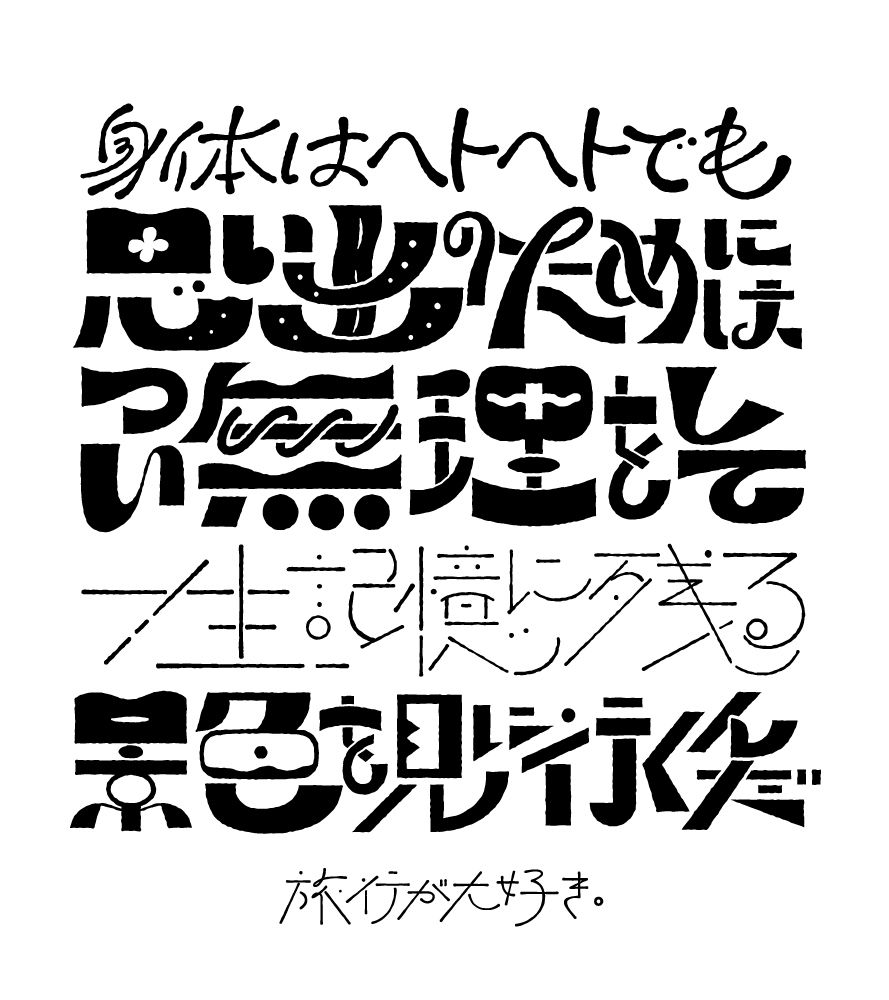 身体はヘトヘトでも
思出のためには
つい無理をして
一生記憶に残る
景色を見に行くんだ
旅行が大好き。